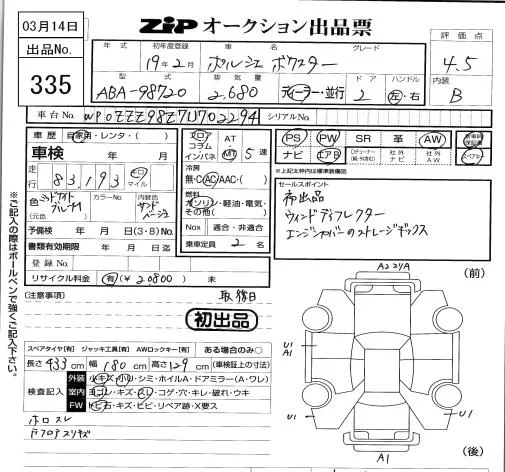 03月14日
ZIP オークション出品票
出品No.
335
年式 初年度登録 車名 グレード 評価点
19年2月 ポルシェ ボクスター 4.5
型式 排気量 ドア ハンドル 内装
ABA-98720 2.680 ディーラー・並行 2 左・右 B
車台No. WP0ZZZ98Z7U702294 シリアルNo.
車歴 自家用・レンタ・( )
車検 年 月
走行 83,193 キロ マイル
色 ミッドナイトブルーM カラーNo. 内装色 サンドベージュ
(元色)
予備検 年 月 日(3・8)No.
書類有効期限 年 月 日迄
登録No.
リサイクル料金 有(¥20800) 未
フロア コラム インパネ AT MT 5速
冷房
無・C・AC・AAC・( )
燃料
ガソリン・軽油・電気・その他( )
Nox 適合・非適合
乗車定員 2名
PS PW SR 革 AW 新車時保証書
ナビ エアB 社外ナビ 社外AW スペアキー
※上記太枠内は標準装備品
セールスポイント
初出品
ウィンドディフレクター
エンジンカバーのストレージボックス
[注意事項] 取後日
初出品
スペアタイヤ[有] ジャッキ工具[有] AWロックキー[有] ある場合のみ○
長さ 433cm 幅 180cm 高さ 129cm (車検証上の寸法)
検査記入
外装 小キズ・小凹・シミ・ホイルA・ドアミラー(A・ワレ)
室内 ヨゴレ・キズ・スレ・コゲ・穴・キレ・破れ・ウキ
FW トビ石・キズ・ヒビ・リペア跡・X要ス
ホロスレ
ドフロアスリキズ
※ご記入の際はボールペンで強くご記入下さい。
(前)
U1
A1
U1
U1
A1
(後)